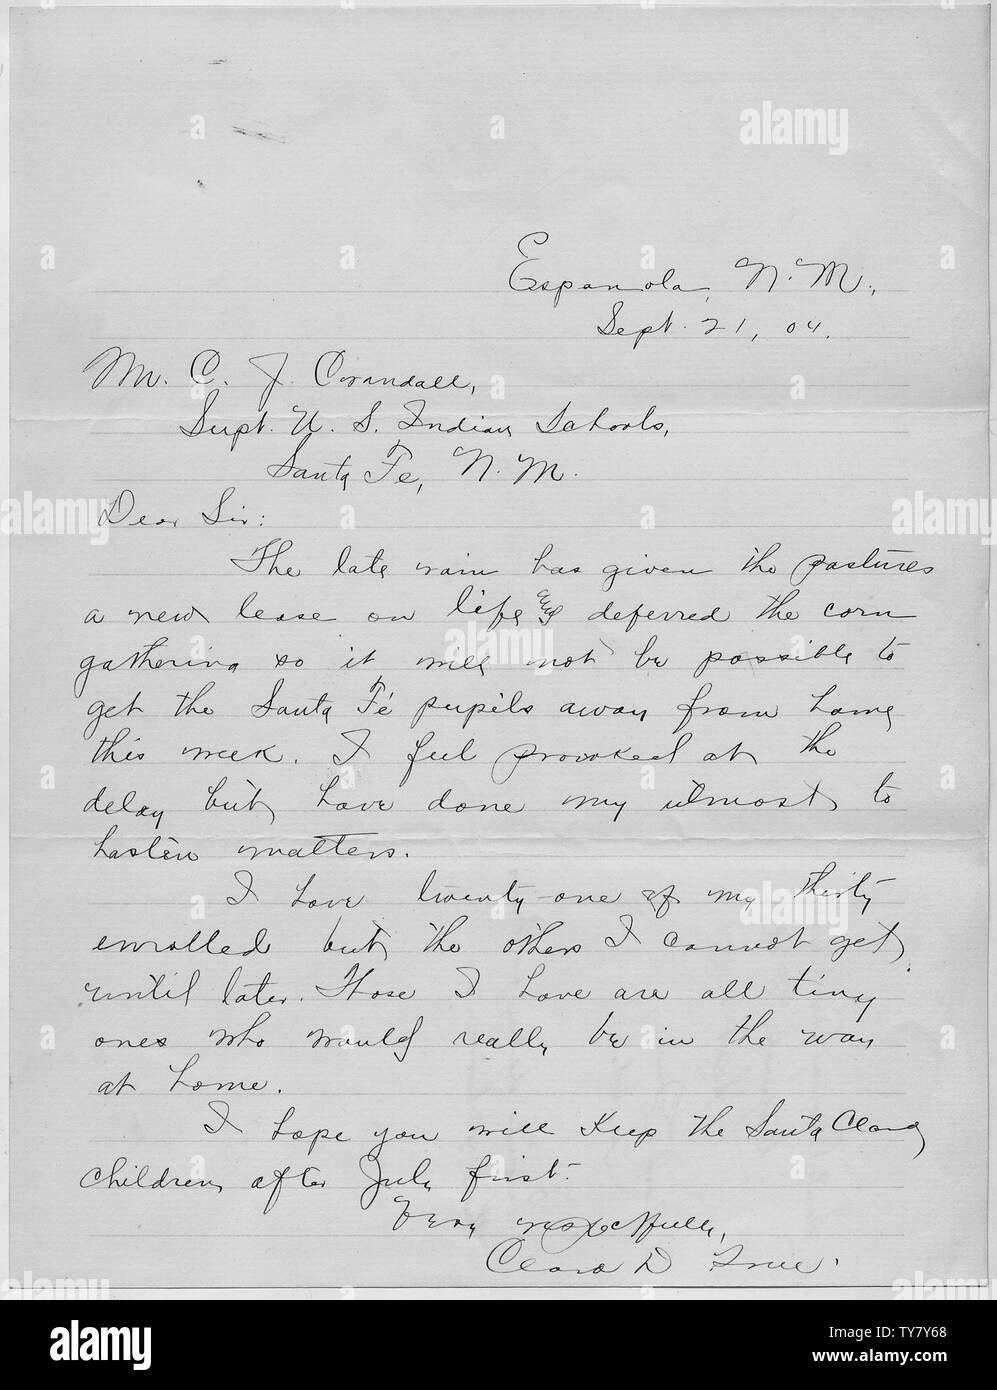 Espanola, N. M.,
Sept. 21, 04.
Mr. C. J. Crandall,
Supt. U. S. Indian Schools,
Santa Fe, N. M.
Dear Sir:
The late rain has given the pastures
a new lease on life and deferred the corn
gathering so it will not be possible to
get the Santa Fé pupils away from home
this week. I feel provoked at the
delay but have done my utmost to
hasten matters.
I have twenty-one of my thirty
enrolled but the others I cannot get
until later. Those I have are all tiny
ones who would really be in the way
at home.
I hope you will keep the Santa Clara
children after July first.
Very respectfully,
Clara D. True.
alamy
alamy
Image ID: TY7Y68
www.alamy.com